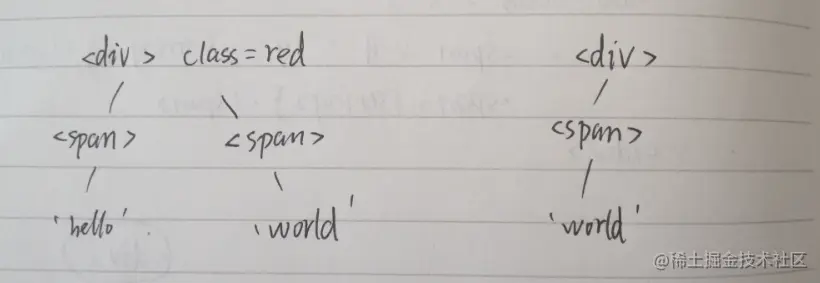 <div> class=red <div>
<span> <span> <span>
'hello' 'world' 'world'
@稀土掘金技术社区